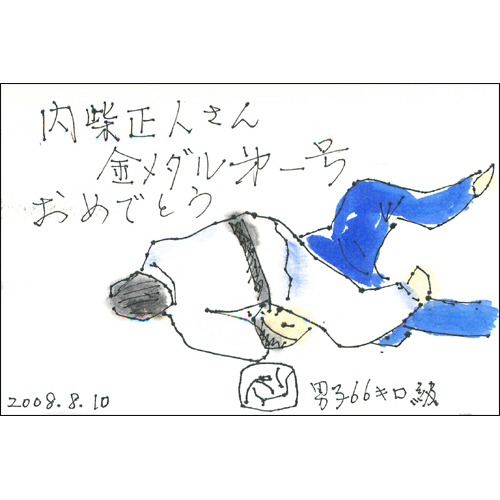 内柴正人さん
金メダル㐧一号
おめでとう
2008.8.10
男子66キロ級